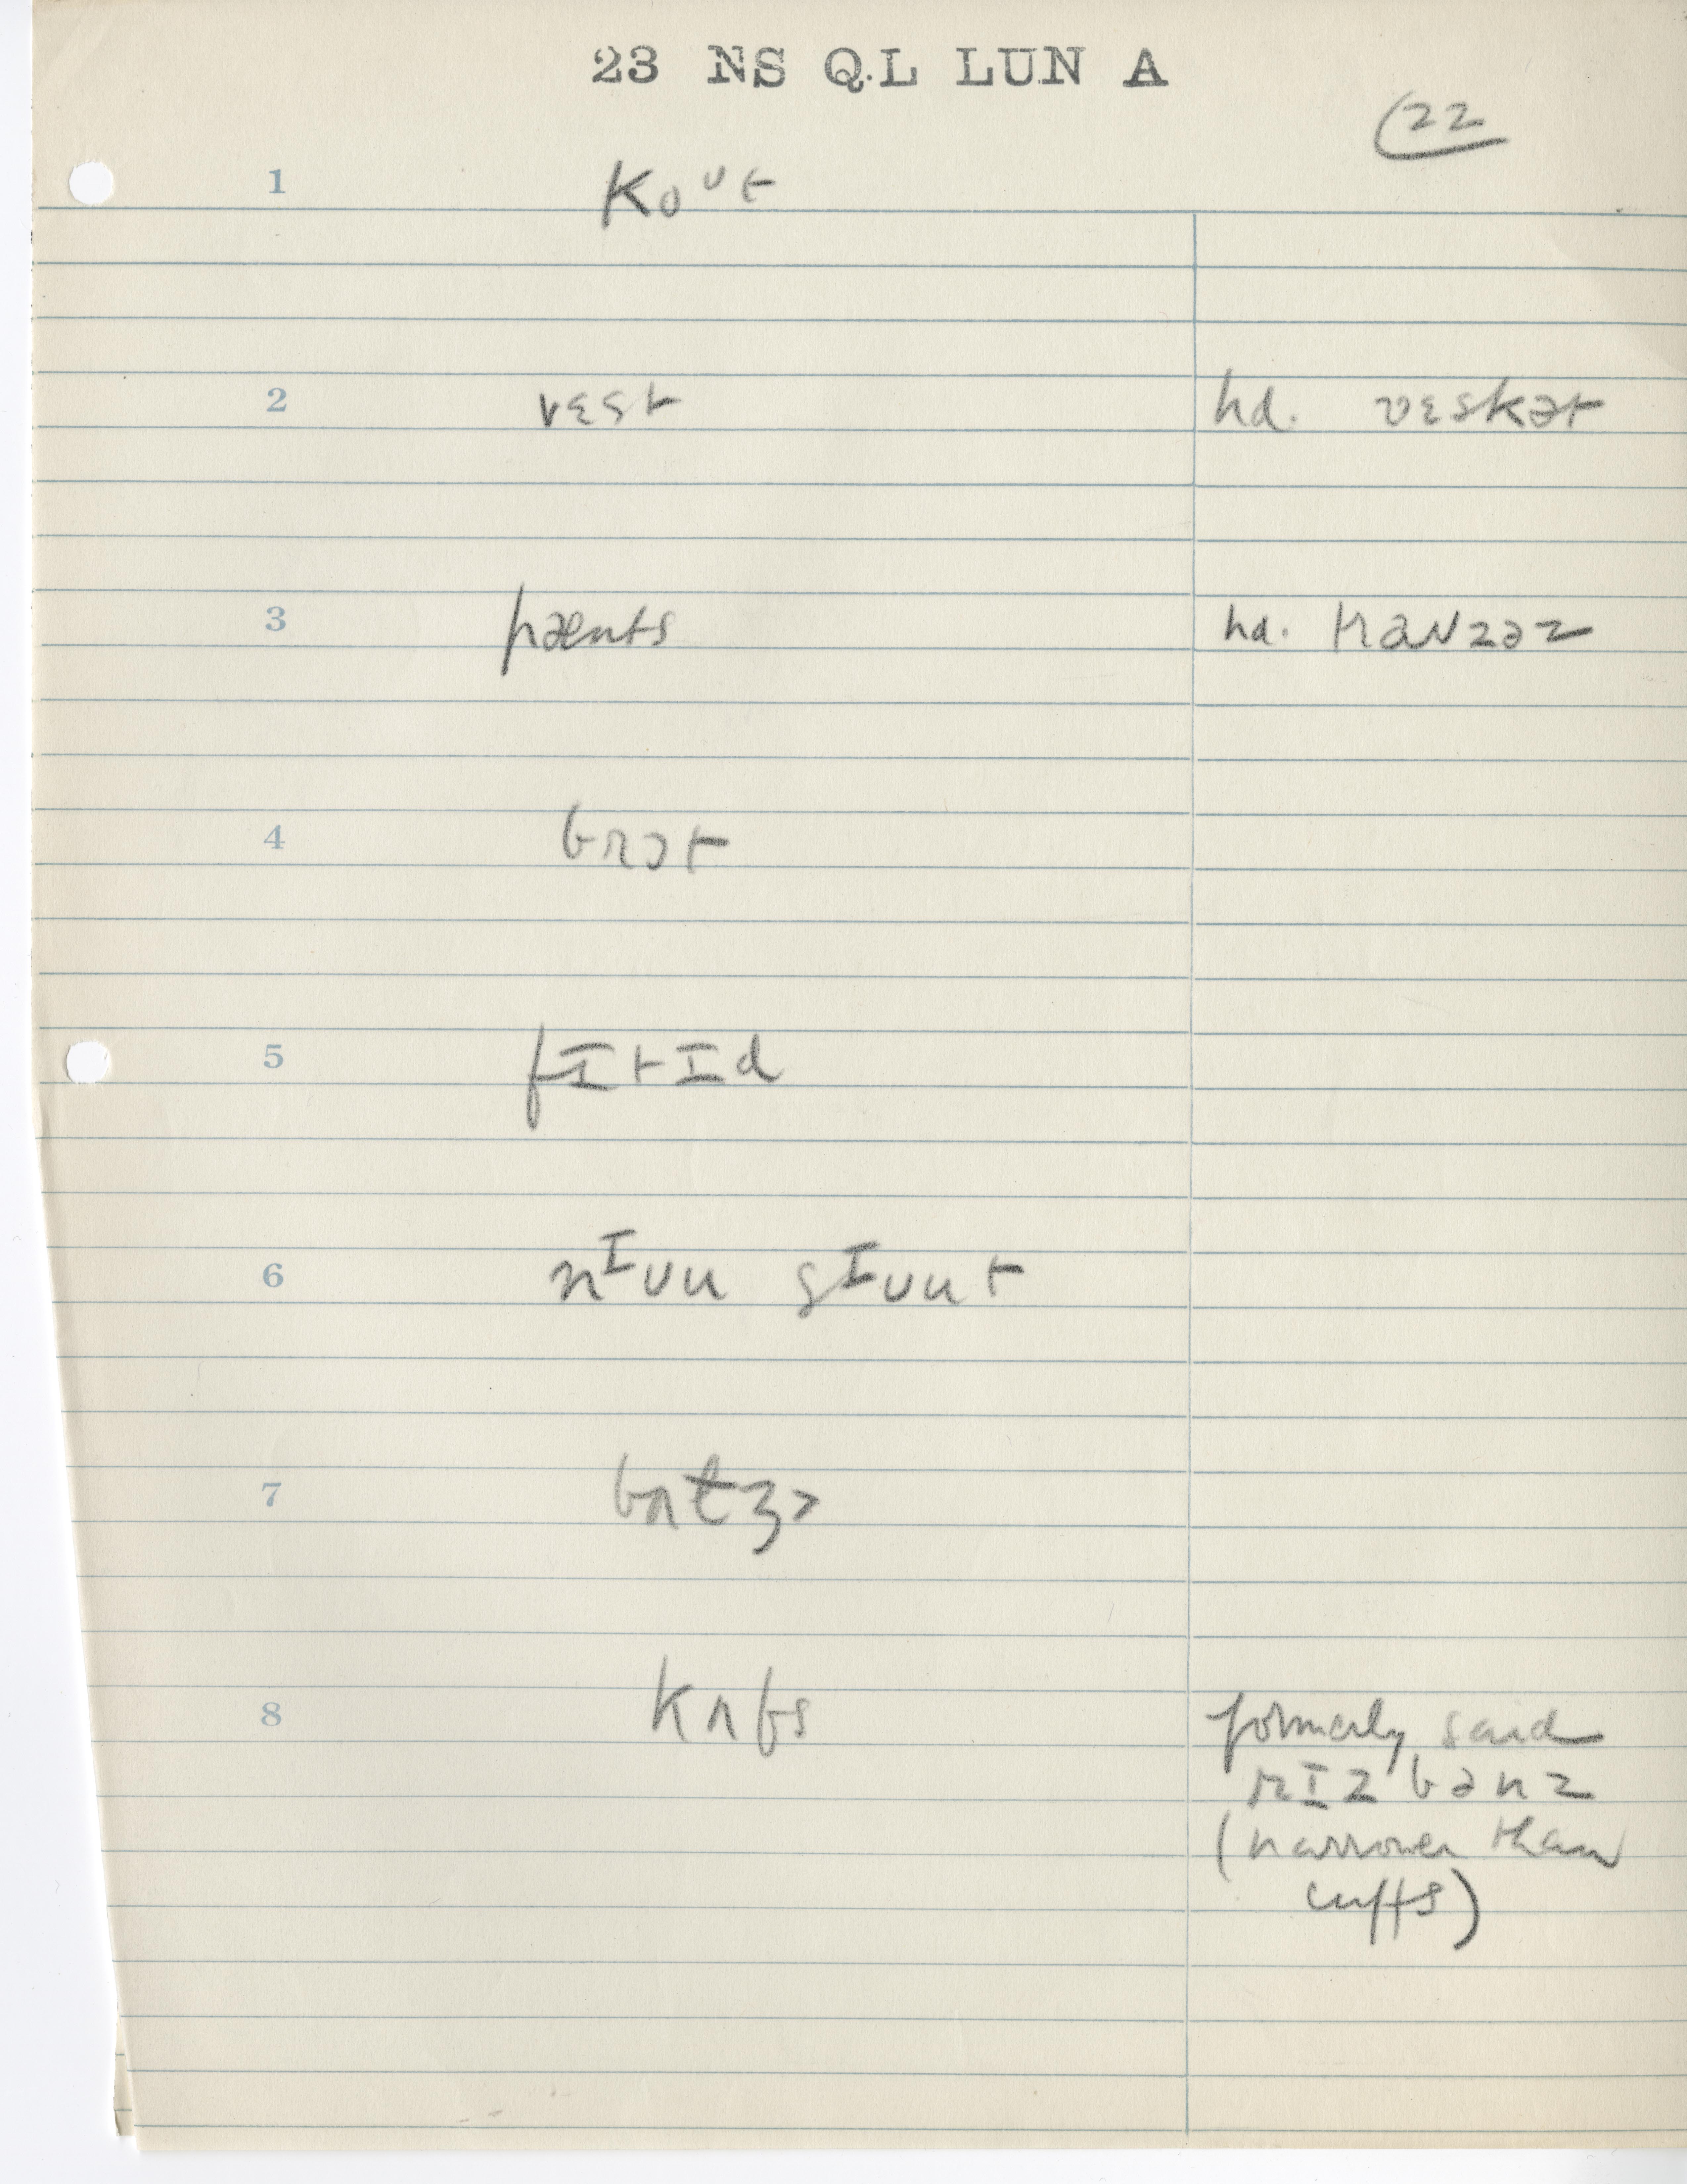 23 NS QL LUN A
22
1 koᴜt
2 vɛst hd. vɛskət
3 pænts hd. traʊzəz
4 brɔt
5 fɪtɪd
6 nᶦuu sᶦuut
7 bʌt̬ɜ>
8 kʌfs formerly said
rɪzbənz
(narrower than
cuffs)